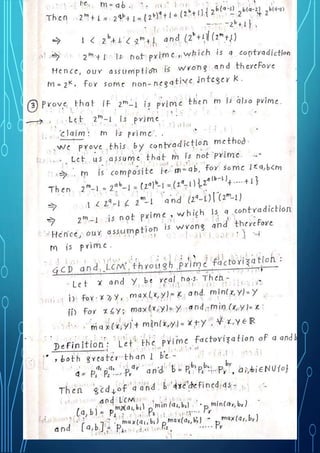 i.e. m=ab.
Then 2^m+1 = 2^{ab}+1 = (2^b)^a+1 = (2^b+1){2^{b(a-1)} - 2^{b(a-2)} + 2^{b(a-3)}
- ... - 2^b+1}.
⇒ 1 < 2^b+1 < 2^m+1 and (2^b+1)|(2^m+1)
⇒ 2^m+1 is not prime, which is a contradiction
Hence, our assumption is wrong and therefore
m=2^k, for some non-negative integer k.
③ Prove that if 2^m-1 is prime then m is also prime.
→ Let 2^m-1 is prime.
claim: m is prime.
we prove this by contradiction method.
Let us assume that m is not prime.
⇒ m is composite i.e. m=ab, for some 1<a,b<m
Then 2^m-1 = 2^{ab}-1 = (2^a)^b-1 = (2^a-1){2^{a(b-1)}+ ... +1}
⇒ 1 < 2^a-1 < 2^m-1 and (2^a-1)|(2^m-1)
⇒ 2^m-1 is not prime, which is a contradiction
Hence, our assumption is wrong and therefore
m is prime.
GCD and LCM through prime factorization:
Let x and y be real nos. Then-
i) for x≥y, max(x,y)=x and min(x,y)=y
ii) for x≤y; max(x,y)=y and min(x,y)=x
max(x,y)+min(x,y)=x+y, ∀ x,y∈R
Definition: Let the prime factorization of a and b
, both greater than 1 be-
a= P₁^{a₁} P₂^{a₂} ... Pᵣ^{aᵣ} and b= P₁^{b₁} P₂^{b₂} ... Pᵣ^{bᵣ}, ai,bi∈NU{0}
Then gcd of a and b are defined as-
and LCM
(a,b)= P₁^{min(a₁,b₁)} P₂^{min(a₂,b₂)} ... Pᵣ^{min(aᵣ,bᵣ)}
and [a,b]= P₁^{max(a₁,b₁)} P₂^{max(a₂,b₂)} ... Pᵣ^{max(aᵣ,bᵣ)}